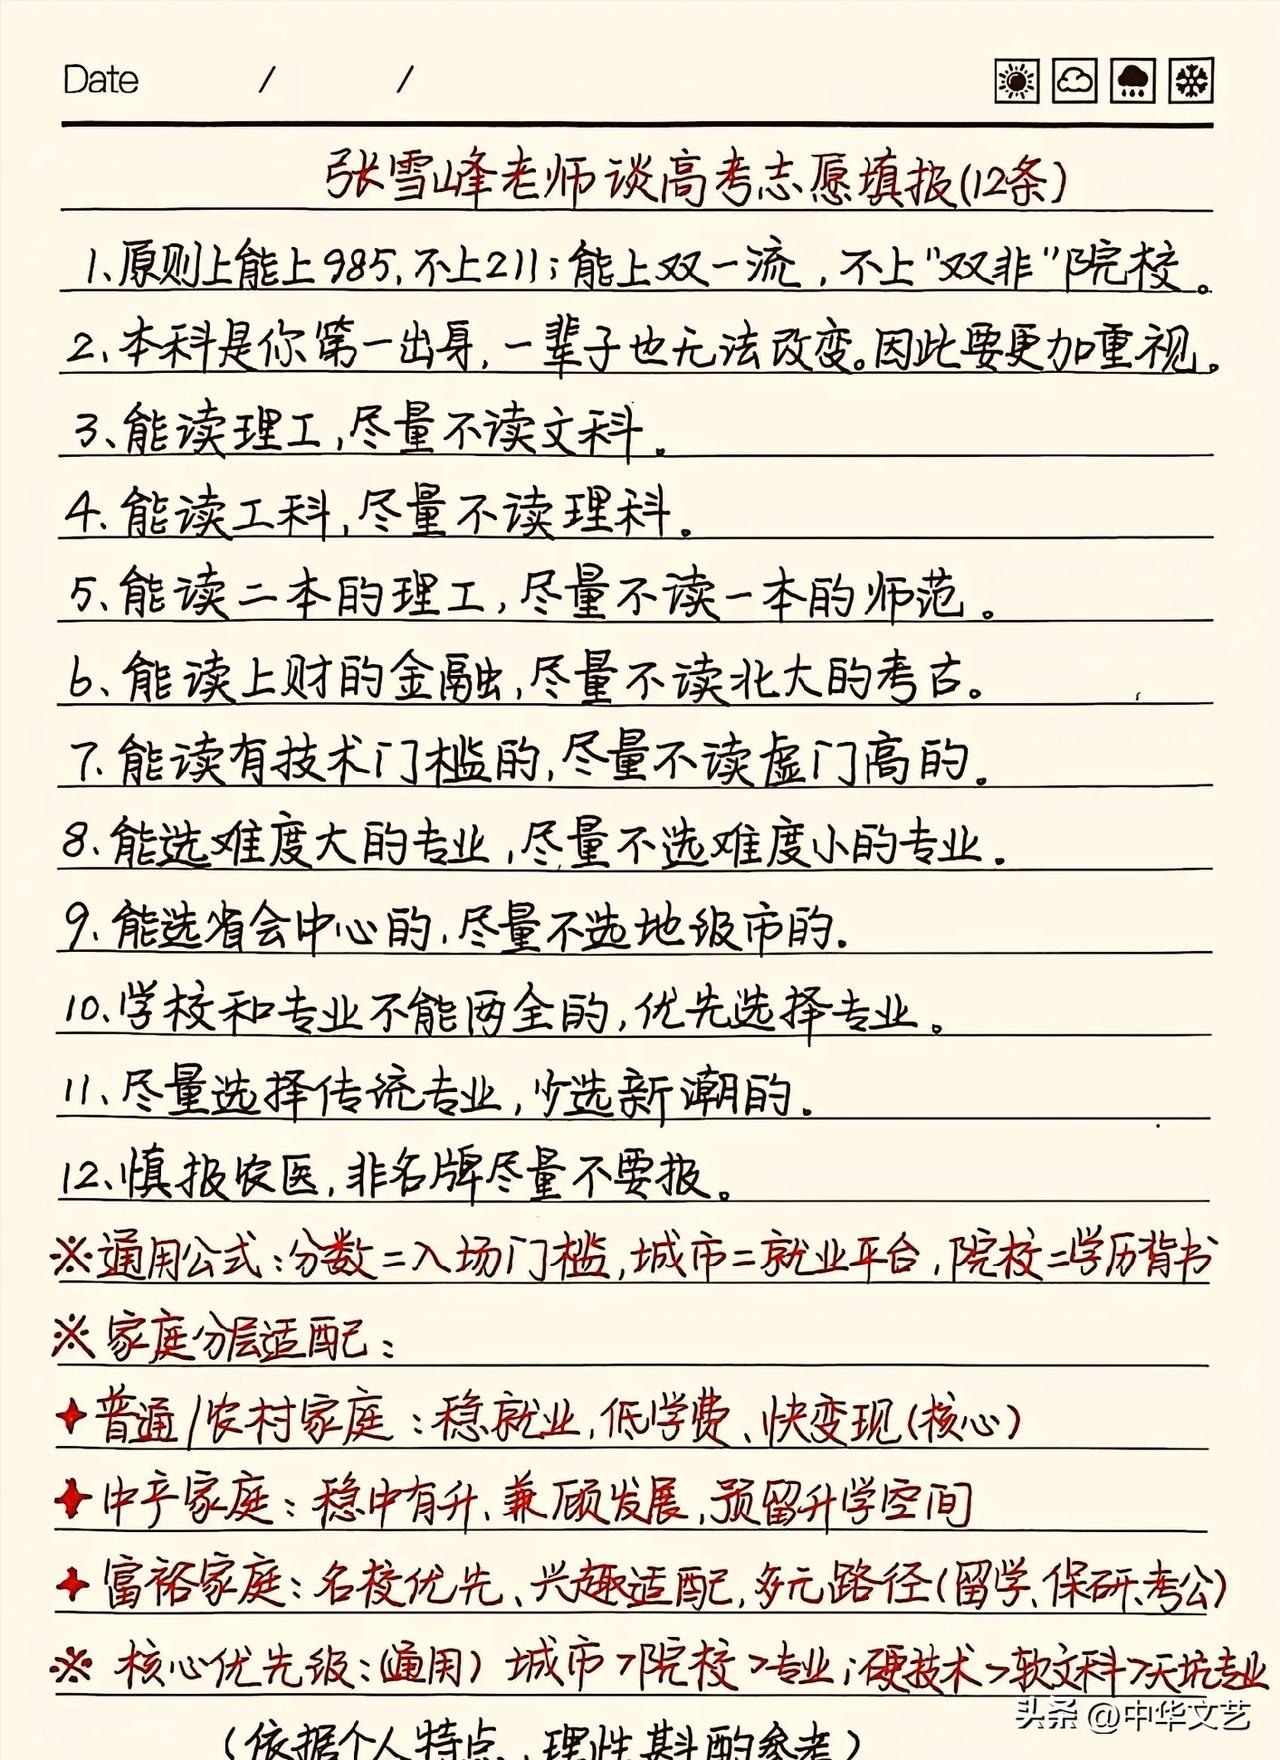 Date / /
张雪峰老师谈高考志愿填报(12条)
1、原则上能上985,不上211;能上双一流,不上"双非"院校。
2、本科是你第一出身,一辈子也无法改变。因此要更加重视。
3、能读理工,尽量不读文科。
4、能读工科,尽量不读理科。
5、能读二本的理工,尽量不读一本的师范。
6、能读上财的金融,尽量不读北大的考古。
7、能读有技术门槛的,尽量不读虚门高的。
8、能选难度大的专业,尽量不选难度小的专业。
9、能选省会中心的,尽量不选地级市的。
10、学校和专业不能两全的,优先选择专业。
11、尽量选择传统专业,少选新潮的。
12、慎报农医,非名牌尽量不要报。
※通用公式:分数=入场门槛,城市=就业平台,院校=学历背书
※家庭分层适配:
✦普通/农村家庭:稳就业,低学费、快变现(核心)
✦中产家庭:稳中有升、兼顾发展,预留升学空间
✦富裕家庭:名校优先、兴趣适配,多元路径(留学、保研、考公)
※核心优先级:(通用)城市>院校>专业;硬技术>软文科>天坑专业
头条@中华文艺
(依据个人特点,理性斟酌参考)